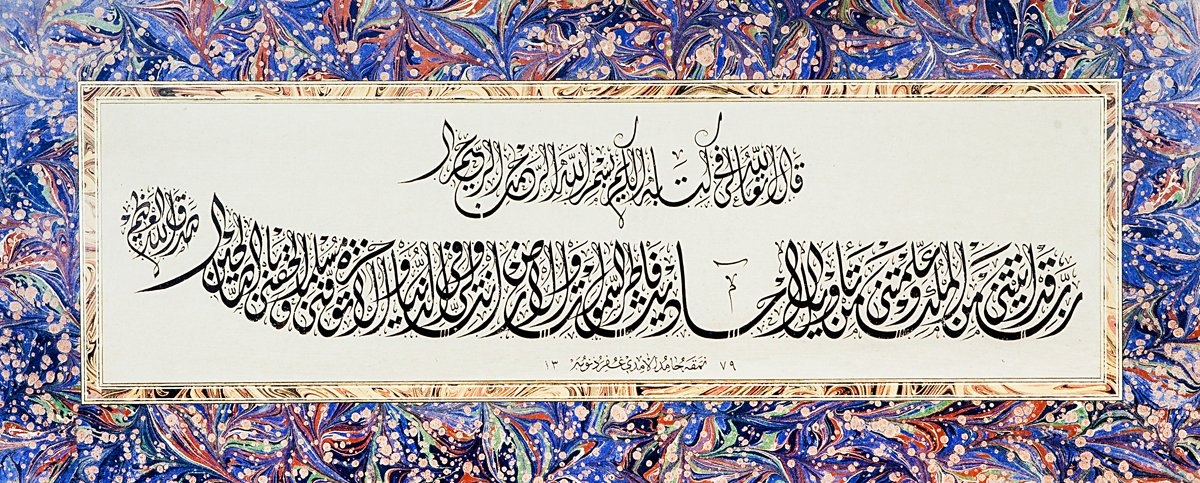 قال الله تعالى في كتابه الكريم بسم الله الرحمن الرحيم
رب قد آتيتني من الملك وعلمتني من تأويل الأحاديث فاطر السموات والأرض أنت وليي في الدنيا والآخرة توفني مسلما وألحقني بالصالحين
صدق الله العظيم
نمقه حامد الآمدي غفر ذنوبه ١٣٧٩